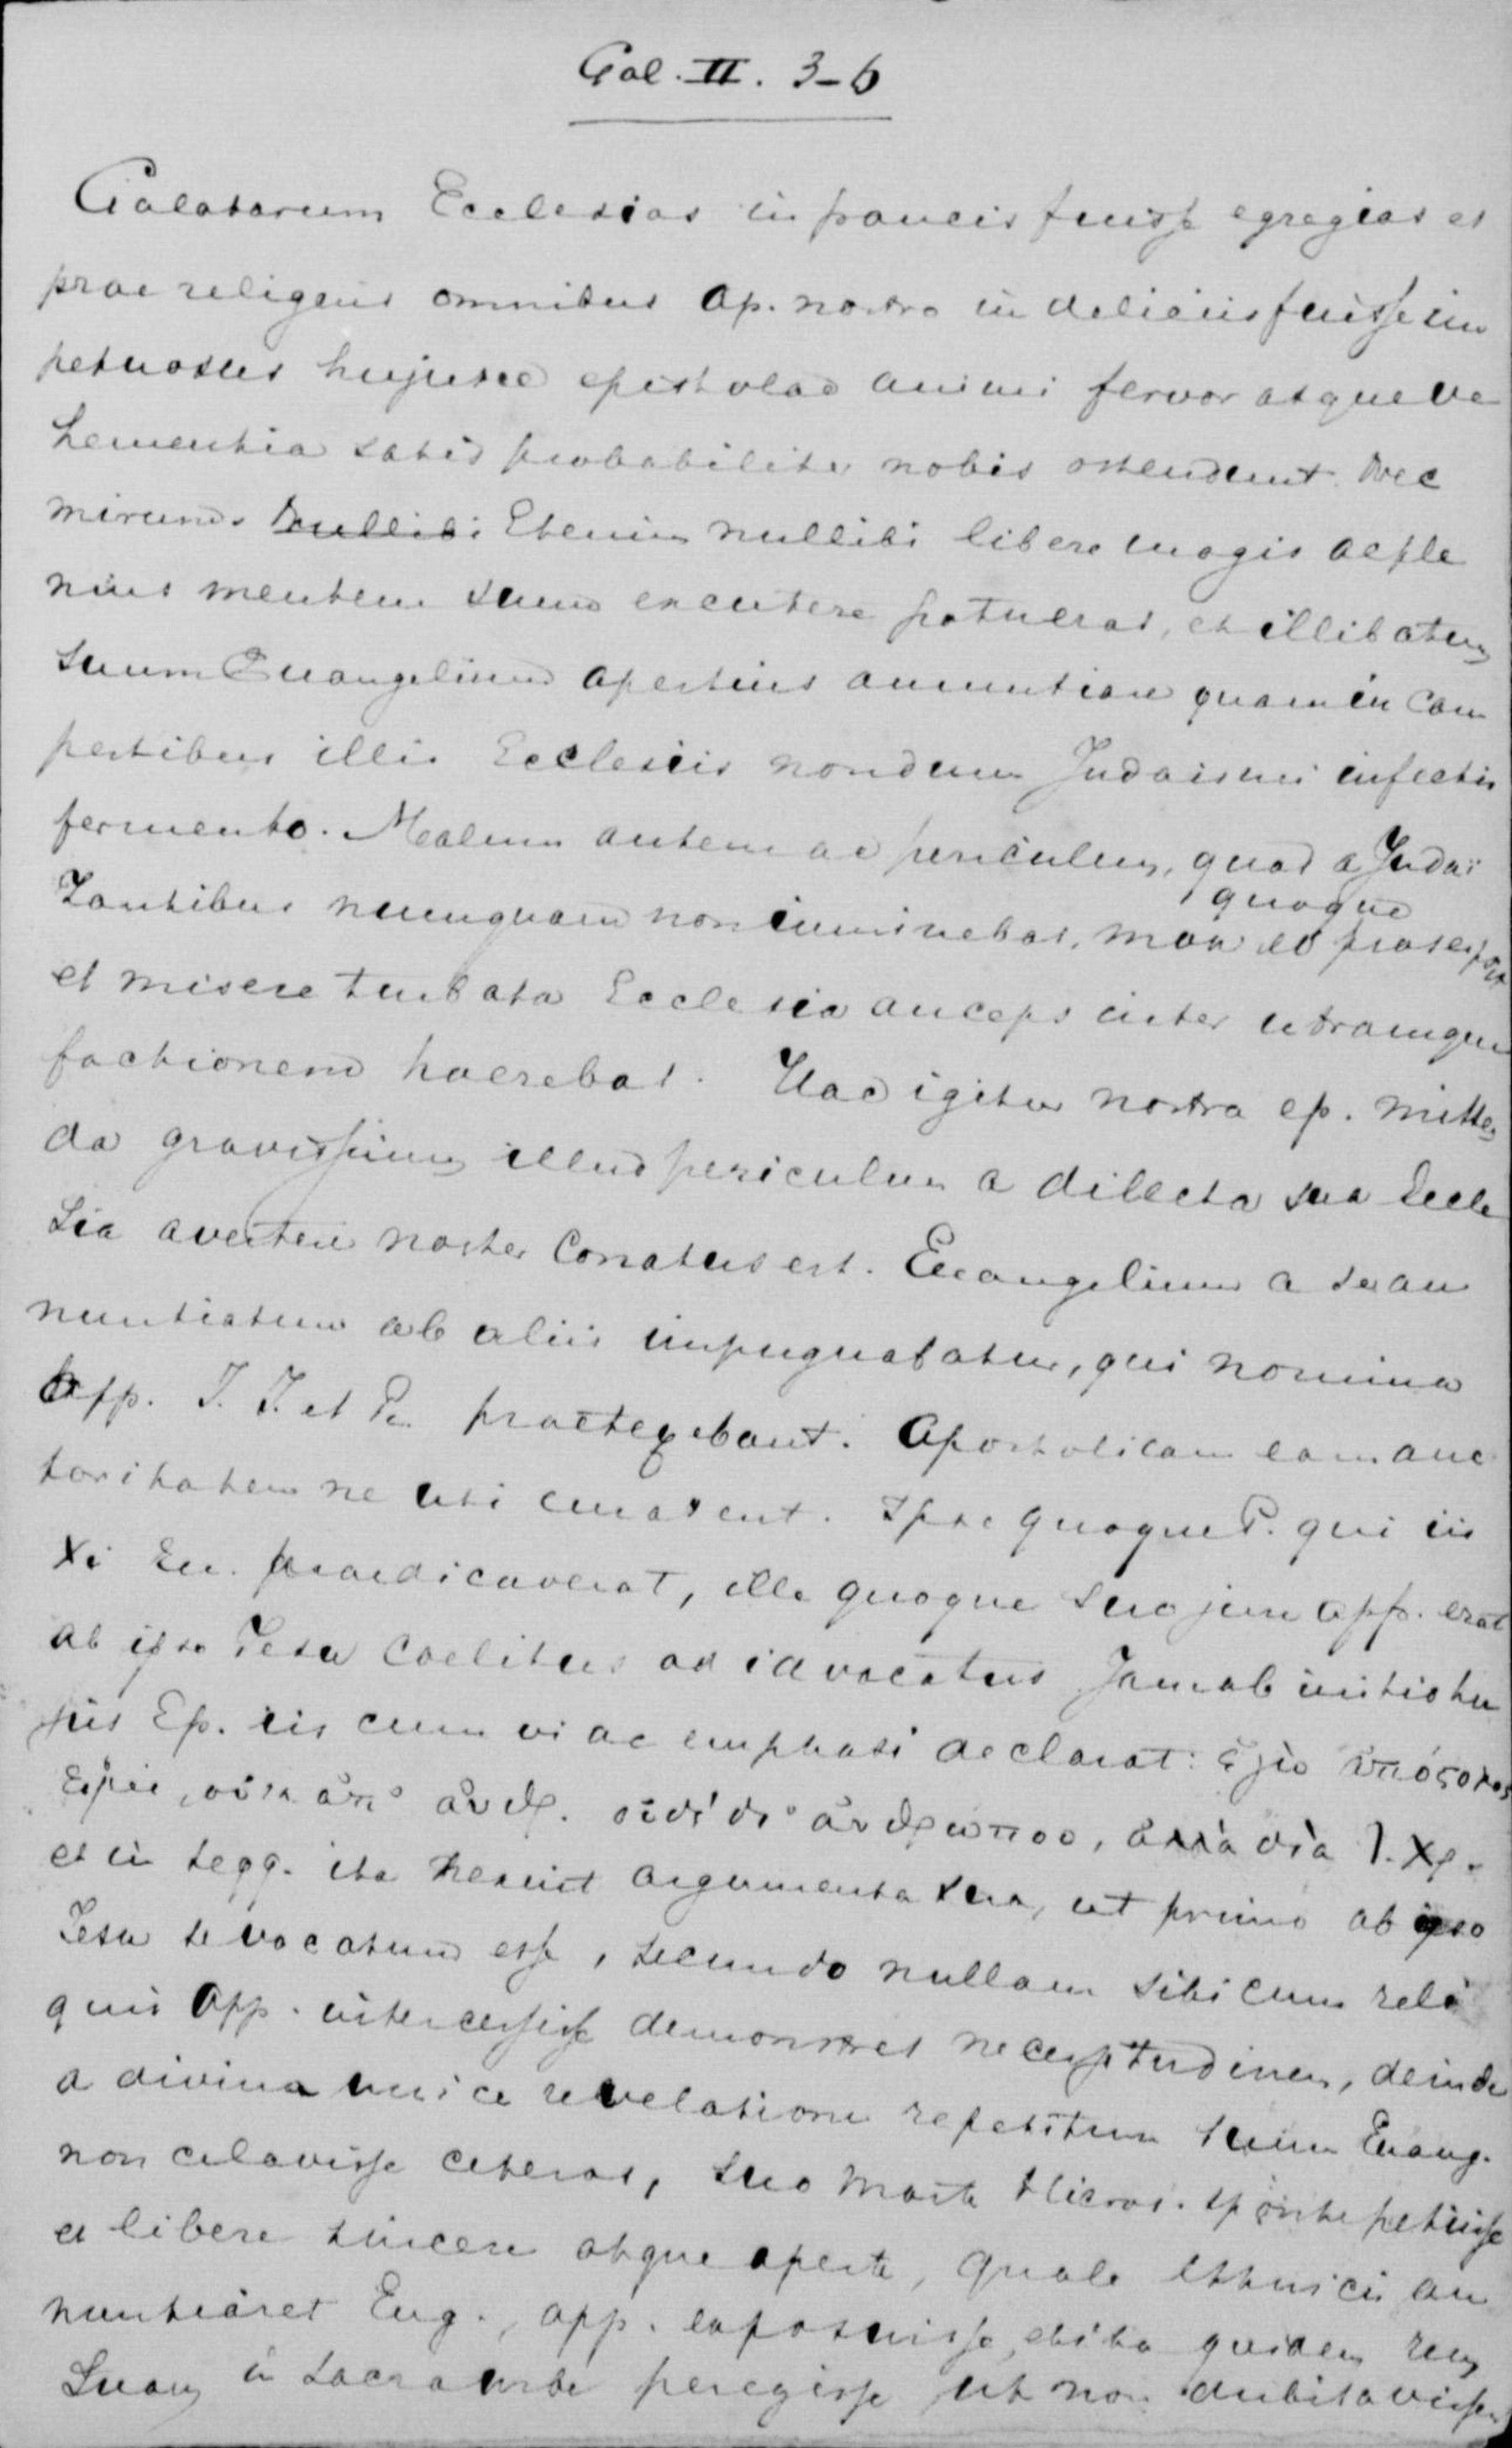 Gal. II. 3-6
Galatarum Ecclesias in paucis fuisse egregias et
prae religuis omnibus Ap. nostro in deliciis fuisse im
petuosus hujusce epistolae animi fervor atque ve
hementia satis probabiliter nobis ostendunt. Nec
mirum. Nullibi Etenim nullibi libere magis ac ple
nius mentem suam excutere potuerat, et illibatum
suum Euangelium apertius annuntiare quam in cam
pestibus illis Ecclesiis nondum Judaismi infectis
fermento. Malum autem ac periculum, quod a Judaï
zantibus numquam non imminebat, mox eo quoque proserpsit
et misere turbata Ecclesia anceps inter utramque
factionem haerebat. Hac igitur nostra ep. mitten
da gravissimum illud periculum a dilecta sua Eccle
sia avertere noster conatus est. Euangelium a se an
nuntiatum ab aliis impugnabatur, qui nomina
App. J. J. et P. praetexebant. Apostolicam eam auc
toritatem ne uti curarent. Ipse quoque P. qui iis
Xi Eu. praedicaverat, ille quoque suo jure App. erat
ab ipso Jesu coelitus ad id vocatus Jam ab initio hu
jus Ep. iis cum vi ac emphasi declarat: ἐγὼ ἀπόστολος
εἰμι, οὐκ ἀπ' ἀνθρ. οὐδὲ δι' ἀνθρωπου, ἀλλὰ διὰ Ἰ. Χρ.
et in seqq. ita argumenta sua, ut primo ab ipso
Jesu se vocatum esse, secundo nullam sibi cum reli
quis App. intercessisse demonstret necessitudinem, deinde
a divina unice revelatione repetitum suum Euang.
non celavisse ceteros, suo marte Hieros. sponte petiisse
et libere sincere atque aperte, quale Ethnicis an
nuntiaret Eug., App. exposuisse, et ita quidem rem
suam in sacra urbe peregisse ut non dubitavissent